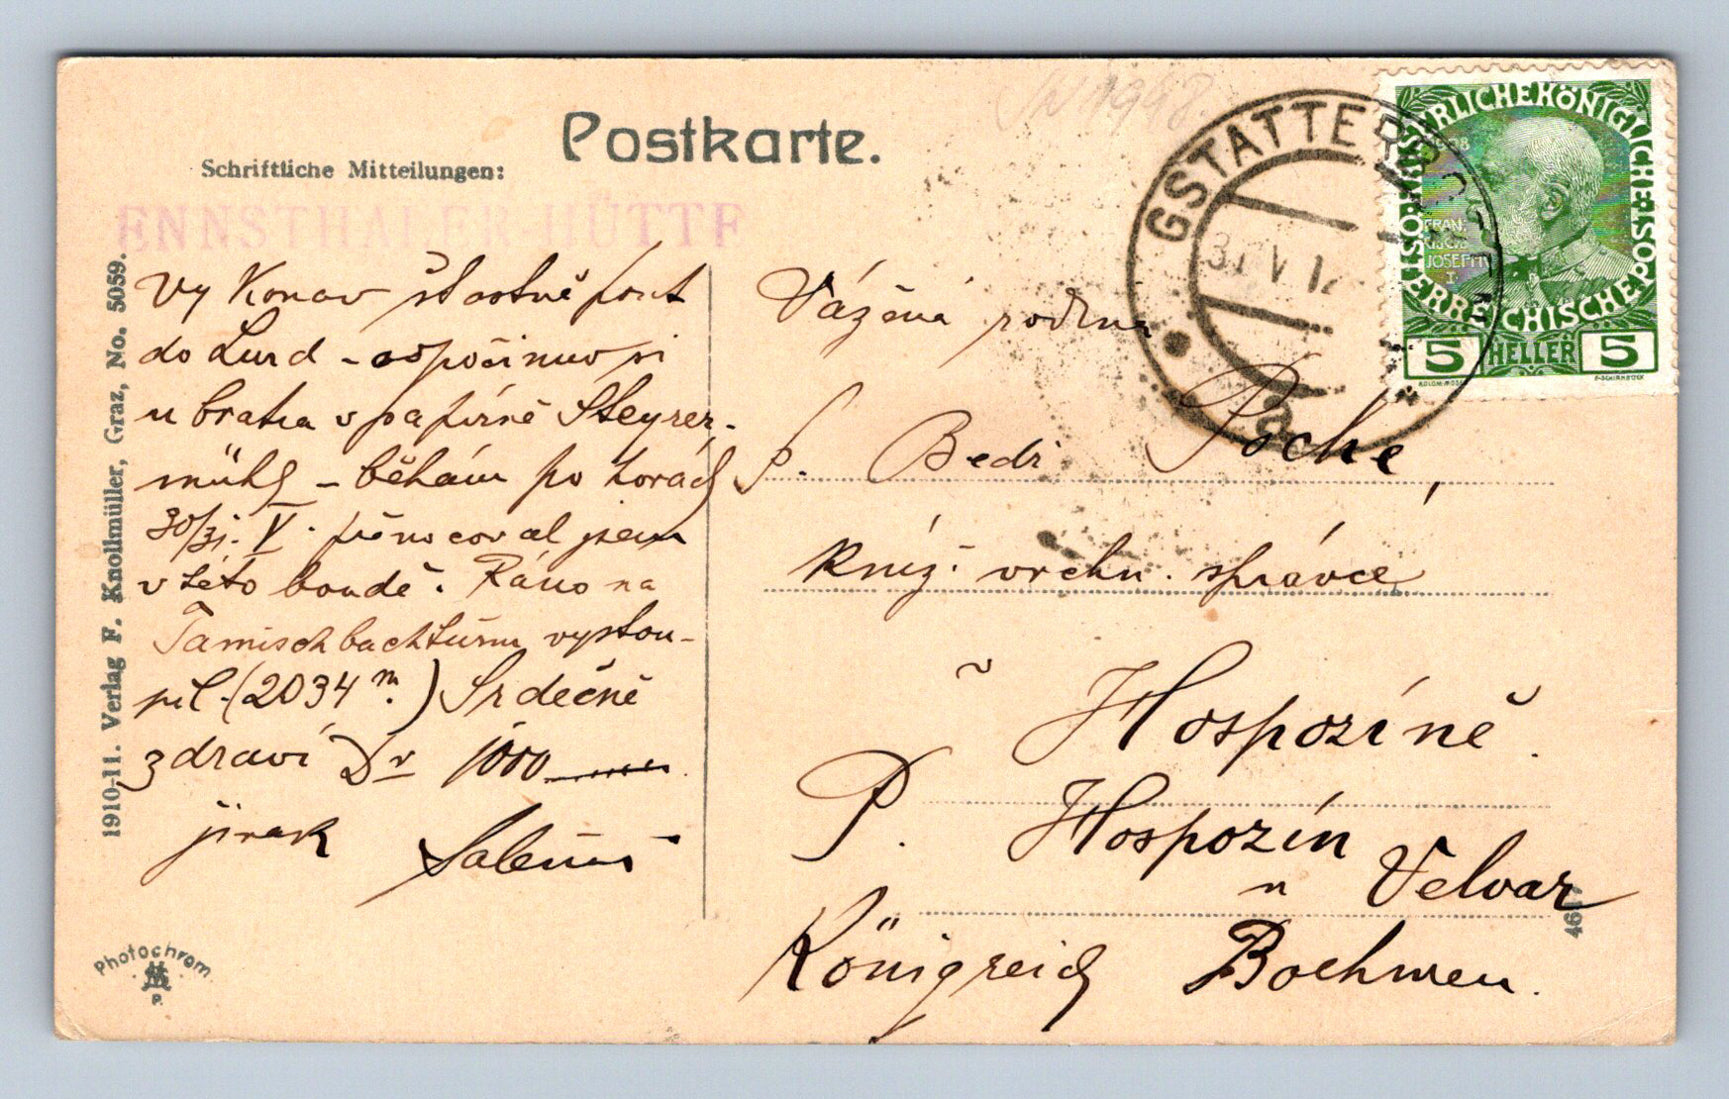 Postkarte.
Schriftliche Mitteilungen:
ENNSTHALER HÜTTE
1910-11. Verlag F. Knollmüller, Graz, No. 5059.
Vykonav šťastně pout
do Lurd – odpočinuv si
u bratra v papírně Steyrer-
mühl – běhám po horách
30/31. V. přenocoval jsem
v této boudě. Ráno na
Tamischbachturm vystou-
pil (2034 m.) Srdečně
zdraví Dr
jinak
GSTATTERBODEN
31 V 12
a
ÖSTERREICHISCHE POST
1908
FRANZISCUS JOSEPH I.
5 HELLER 5
Vážená rodina
P. Bedř. Poche,
kníž. vrchn. správce
v Hospozíně.
P. Hospozín
u Velvar
Königreich Boehmen.
Photochrom
P.